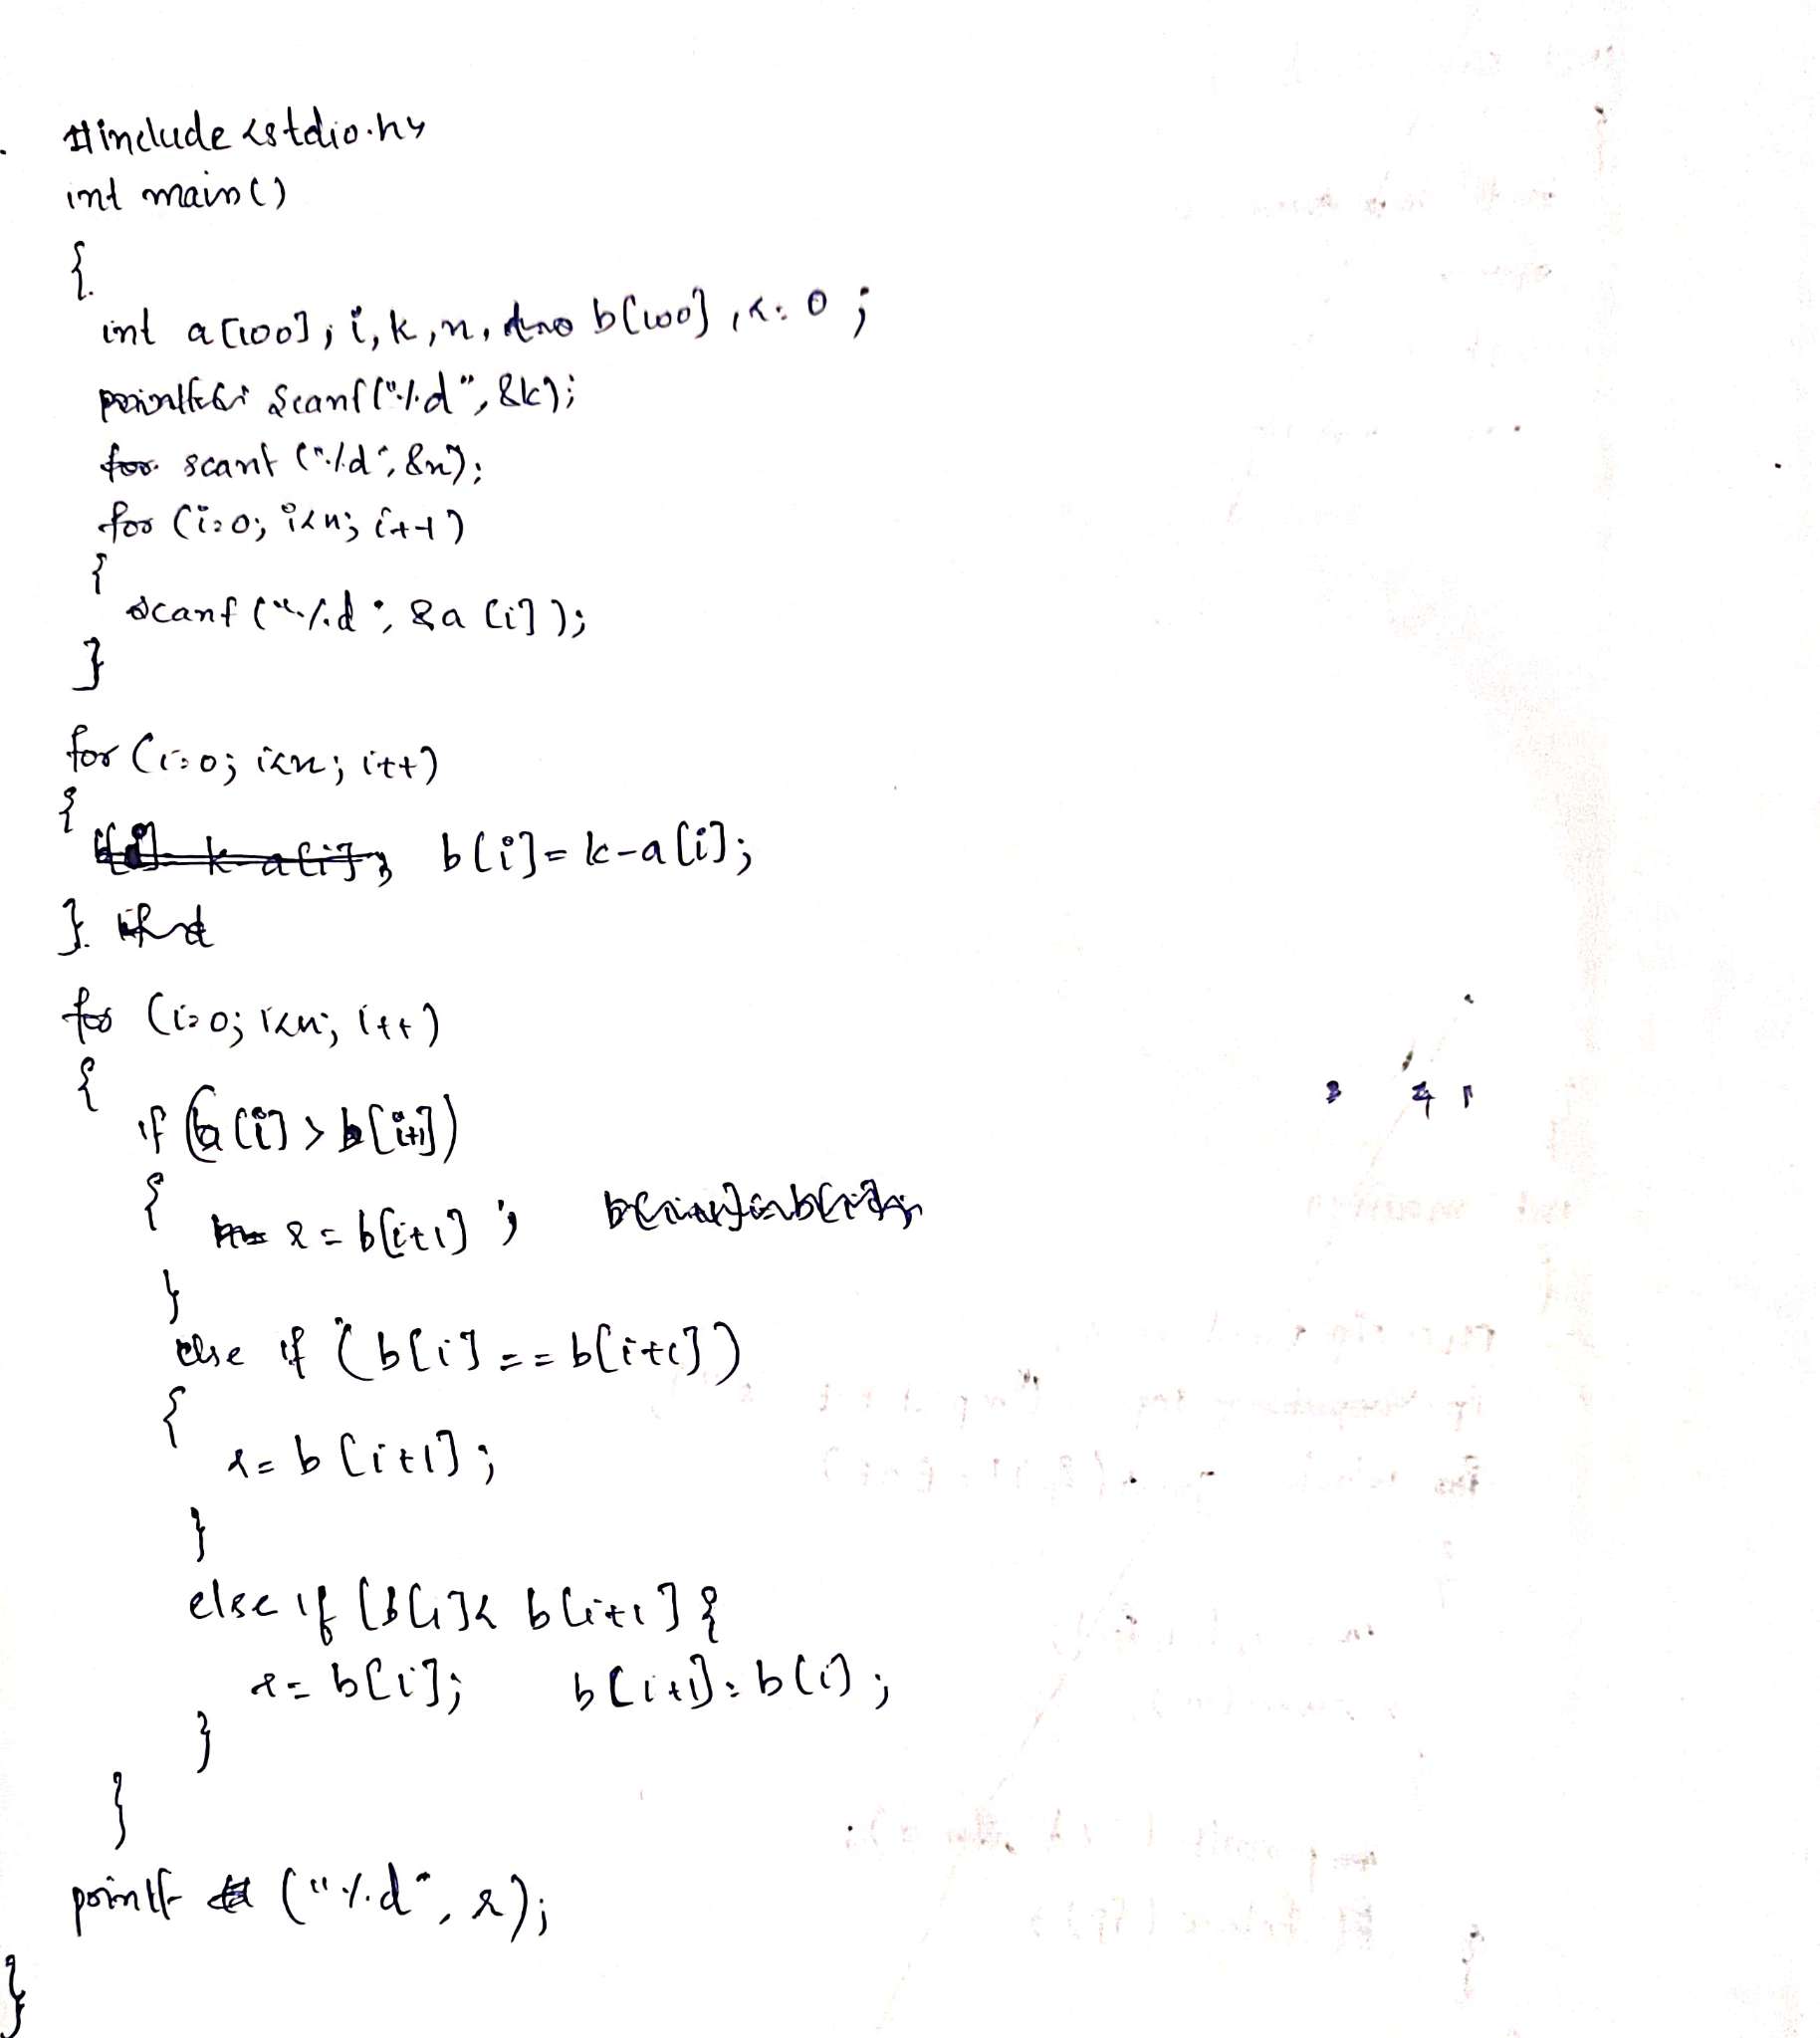 #include <stdio.h>
int main()
{
int a[100], i, k, n, b[100], r=0;
scanf("%d", &k);
scanf("%d", &n);
for (i=0; i<n; i++)
{
scanf("%d", &a[i]);
}
for (i=0; i<n; i++)
{
b[i]=k-a[i];
}
for (i=0; i<n; i++)
{
if (b[i] > b[i+1])
{
r=b[i+1];
}
else if (b[i]==b[i+1])
{
r=b[i+1];
}
else if (b[i]< b[i+1] {
r=b[i]; b[i+1]=b[i];
}
}
printf ("%d", r);
}